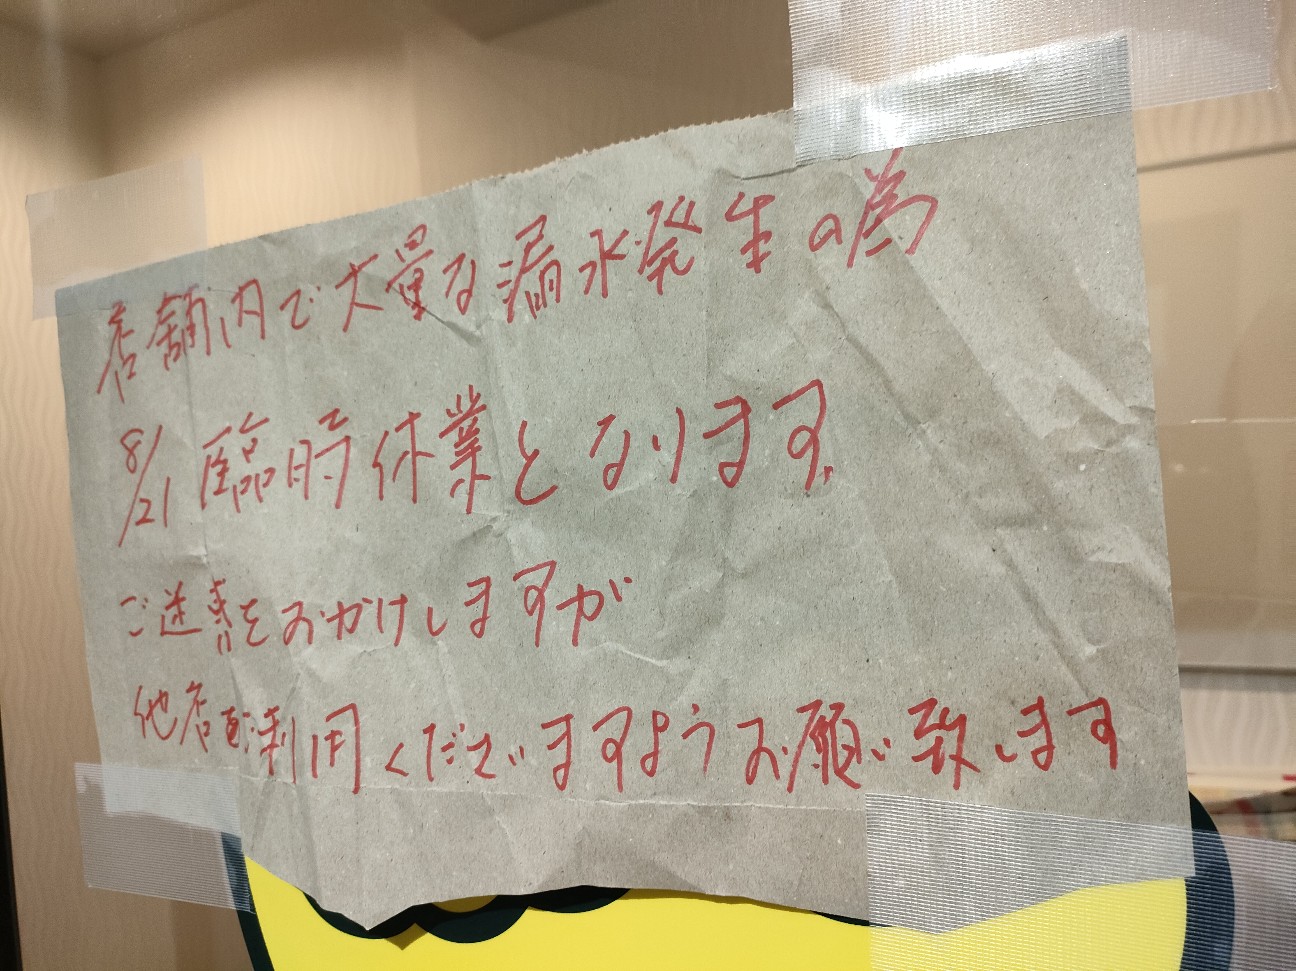 店舗内で大量な漏水発生の為
8/21 臨時休業となります。
ご迷惑をおかけしますが
他店ご利用くださいますようお願い致します